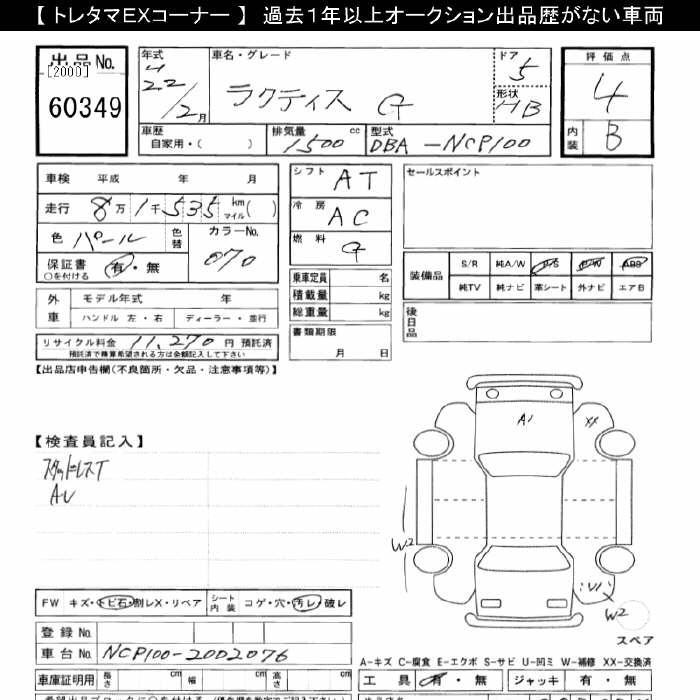 【 トレタマEXコーナー 】 過去1年以上オークション出品歴がない車両
出品 No.
[2000]
60349
年式
22/2月
車名・グレード
ラクティス G
ドア
5
形状
HB
評価点
4
内装
B
車歴
自家用・( )
排気量
1500 cc
型式
DBA-NCP100
車検 平成 年 月
走行 8万 1千 535 km マイル( )
色 パール
色替
カラーNo.
070
保証書 有・無
○を付ける
シフト AT
冷房 AC
燃料 G
セールスポイント
装備品
S/R 純A/W P/S P/W ABS
純TV 純ナビ 革シート 外ナビ エアB
乗車定員 名
積載量 kg
総重量 kg
書類期限
月 日
後日品
外車
モデル年式 年
ハンドル 左・右 ディーラー・並行
リサイクル料金 11,270 円 預託済
預託済で精算希望される方は金額記入して下さい
【出品店申告欄(不良箇所・欠品・注意事項等)】
【検査員記入】
スタッドレスT
AV
A1
XX
W2
W2
スペア
FW キズ・トビ石・割レX・リペア
シート内装
コゲ・穴・汚レ・破レ
登録 No.
車台 No. NCP100-2002076
車庫証明用 長さ cm 幅 cm 高さ cm
A-キズ C-腐食 E-エクボ S-サビ U-凹ミ W-補修 XX-交換済
工具 有・無 ジャッキ 有・無